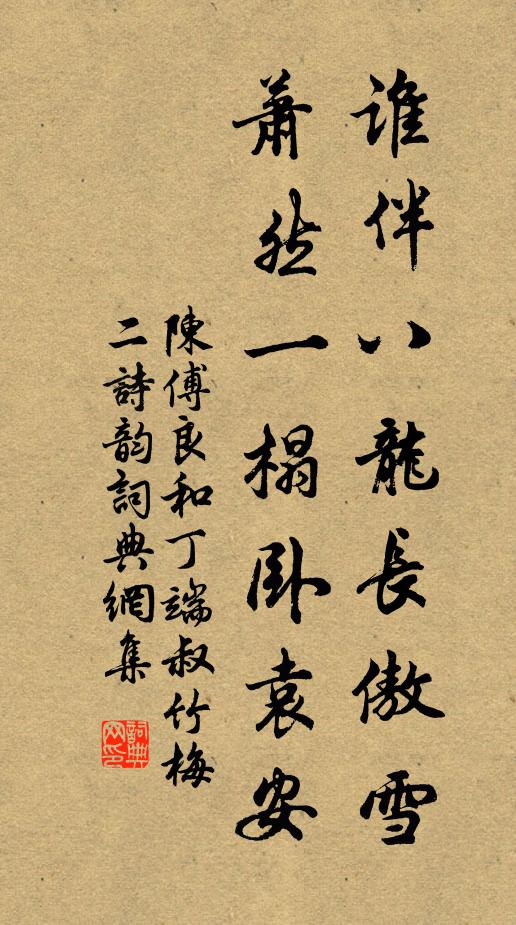 誰伴八龍長傲雪
蕭然一榻臥袁安
陳傅良和丁端叔竹梅
二詩韵詞典網集
詞典
网印